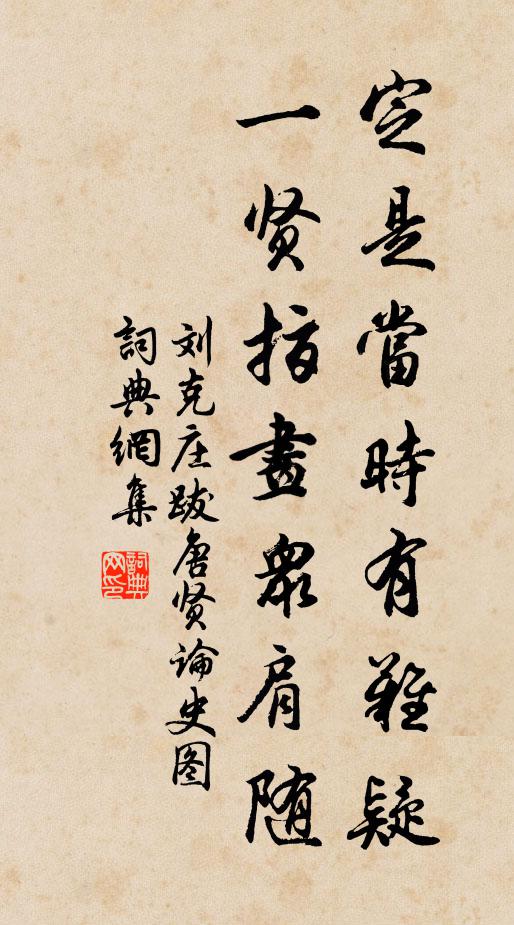 定是當時有難疑
一贤指畫衆肩随
刘克庄跋唐贤論史图
詞典網集
詞典
网印